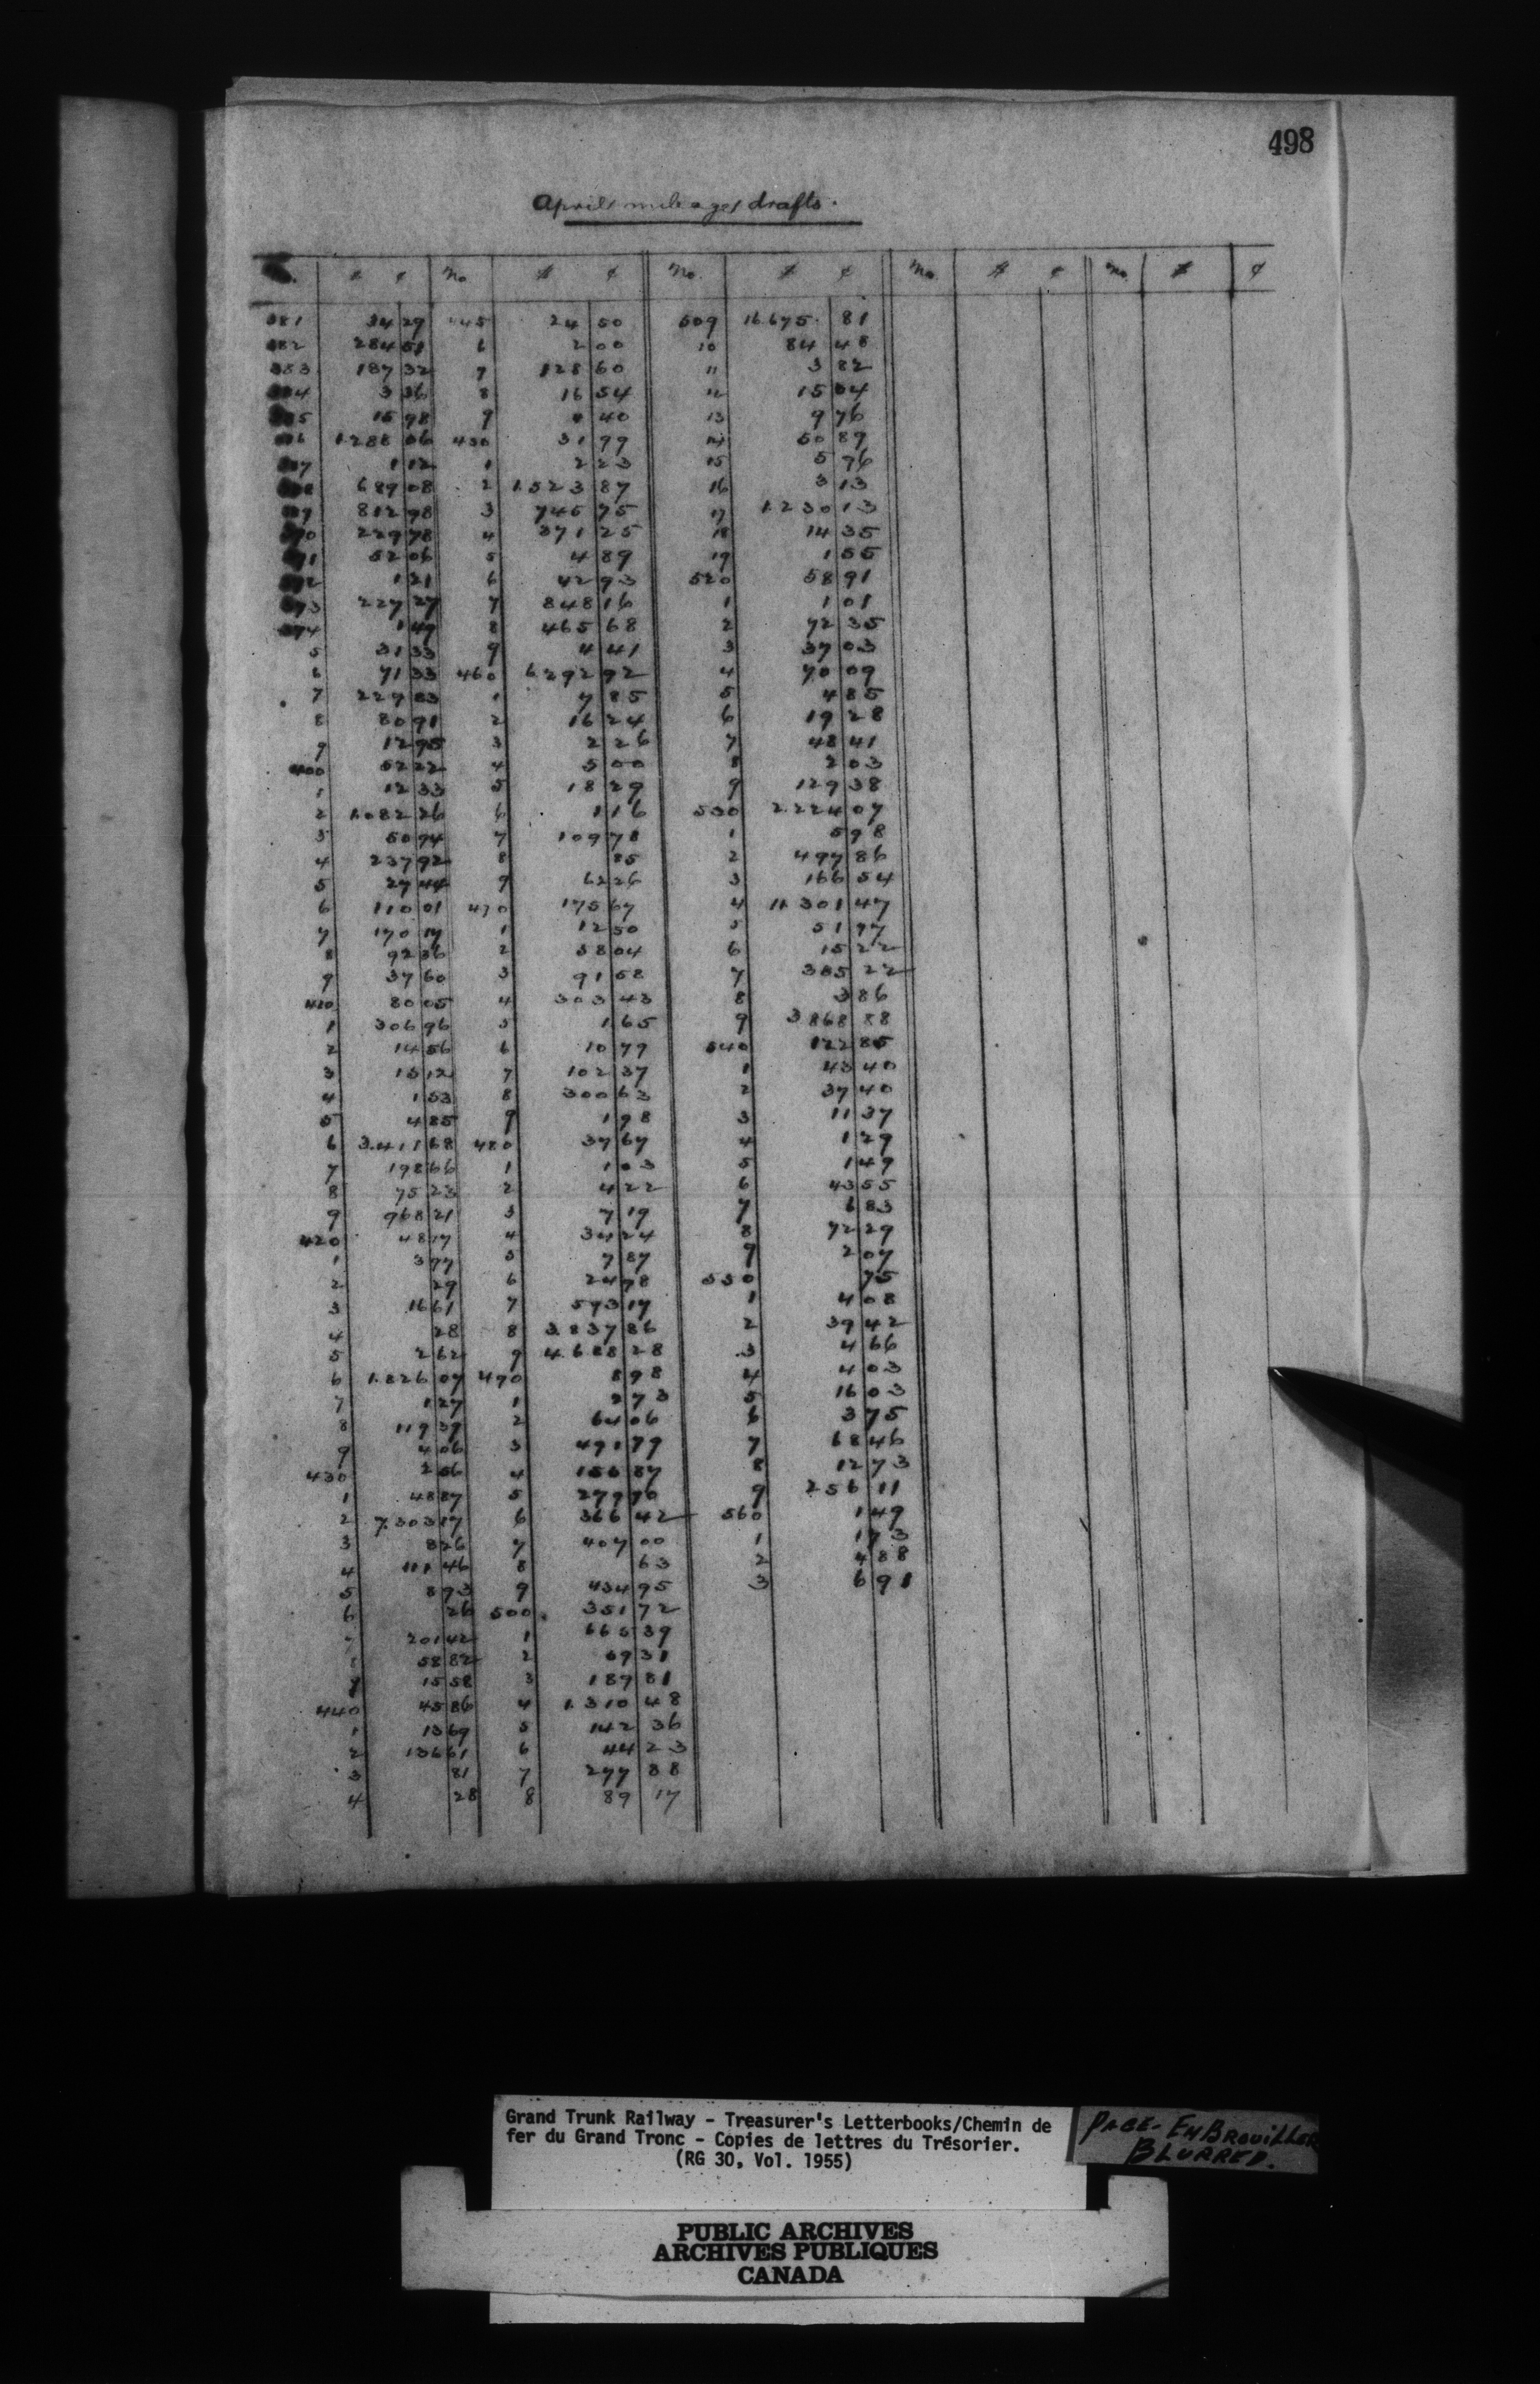 498
April mileages drafts.
No. $ ¢ No $ ¢ No. $ ¢ No. $ ¢ No. $ ¢
381 34 29 445 24 50 509 16.675. 81
382 284 51 6 2 00 10 84 48
383 187 32 7 128 60 11 3 82
384 3 36 8 16 54 12 15 04
385 15 98 9 40 13 9 76
386 1.288 06 450 31 99 14 50 89
387 1 12 1 2 23 15 5 76
388 689 08 2 1.523 87 16 3 13
389 812 98 3 745 75 17 1.230 13
390 229 78 4 371 25 18 14 35
391 52 06 5 4 89 19 1 55
392 1 21 6 42 93 520 58 91
393 227 27 7 848 16 1 1 01
394 1 47 8 465 68 2 72 35
5 31 33 9 4 41 3 37 03
6 71 33 460 6.292 92 4 70 09
7 229 83 1 7 85 5 4 85
8 80 91 2 16 24 6 19 28
9 12 95 3 2 26 7 48 41
400 52 22 4 5 00 8 2 03
1 12 33 5 18 29 9 129 38
2 1.082 26 6 1 16 530 2.224 07
3 50 94 7 109 78 1 5 98
4 237 92 8 85 2 497 86
5 27 44 9 62 26 3 166 54
6 110 01 470 175 67 4 11.301 47
7 170 17 1 12 50 5 51 97
8 92 36 2 58 04 6 15 22
9 37 60 3 91 58 7 385 22
410 80 05 4 303 43 8 3 86
1 306 96 5 1 65 9 3.868 88
2 14 56 6 10 79 540 122 85
3 15 12 7 102 37 1 43 40
4 1 53 8 300 63 2 37 40
5 4 85 9 1 98 3 11 37
6 3.411 68 480 37 67 4 1 29
7 198 66 1 1 03 5 1 49
8 75 23 2 4 22 6 43 55
9 968 21 3 7 19 7 6 83
420 48 17 4 34 24 8 72 29
1 3 77 5 7 87 9 2 07
2 29 6 24 78 550 75
3 16 61 7 573 17 1 4 08
4 28 8 3.837 86 2 39 42
5 2 62 9 4.688 28 3 4 66
6 1.826 07 490 8 98 4 4 03
7 1 27 1 2 73 5 16 03
8 119 39 2 64 06 6 3 75
9 4 06 3 491 79 7 68 46
430 2 56 4 156 87 8 12 73
1 48 87 5 279 90 9 256 11
2 7.303 17 6 366 42 560 1 49
3 8 26 7 407 00 1 1 73
4 111 46 8 63 2 4 88
5 8 93 9 434 95 3 6 91
6 26 500. 351 72
7 201 42 1 665 39
8 58 82 2 69 31
9 15 58 3 189 81
440 45 86 4 1.310 48
1 13 69 5 142 36
2 136 61 6 44 23
3 81 7 277 88
4 28 8 89 17
Grand Trunk Railway - Treasurer's Letterbooks/Chemin de
fer du Grand Tronc - Copies de lettres du Trésorier.
(RG 30, Vol. 1955)
PAGE- EMBROUILLER
BLURRED.
PUBLIC ARCHIVES
ARCHIVES PUBLIQUES
CANADA